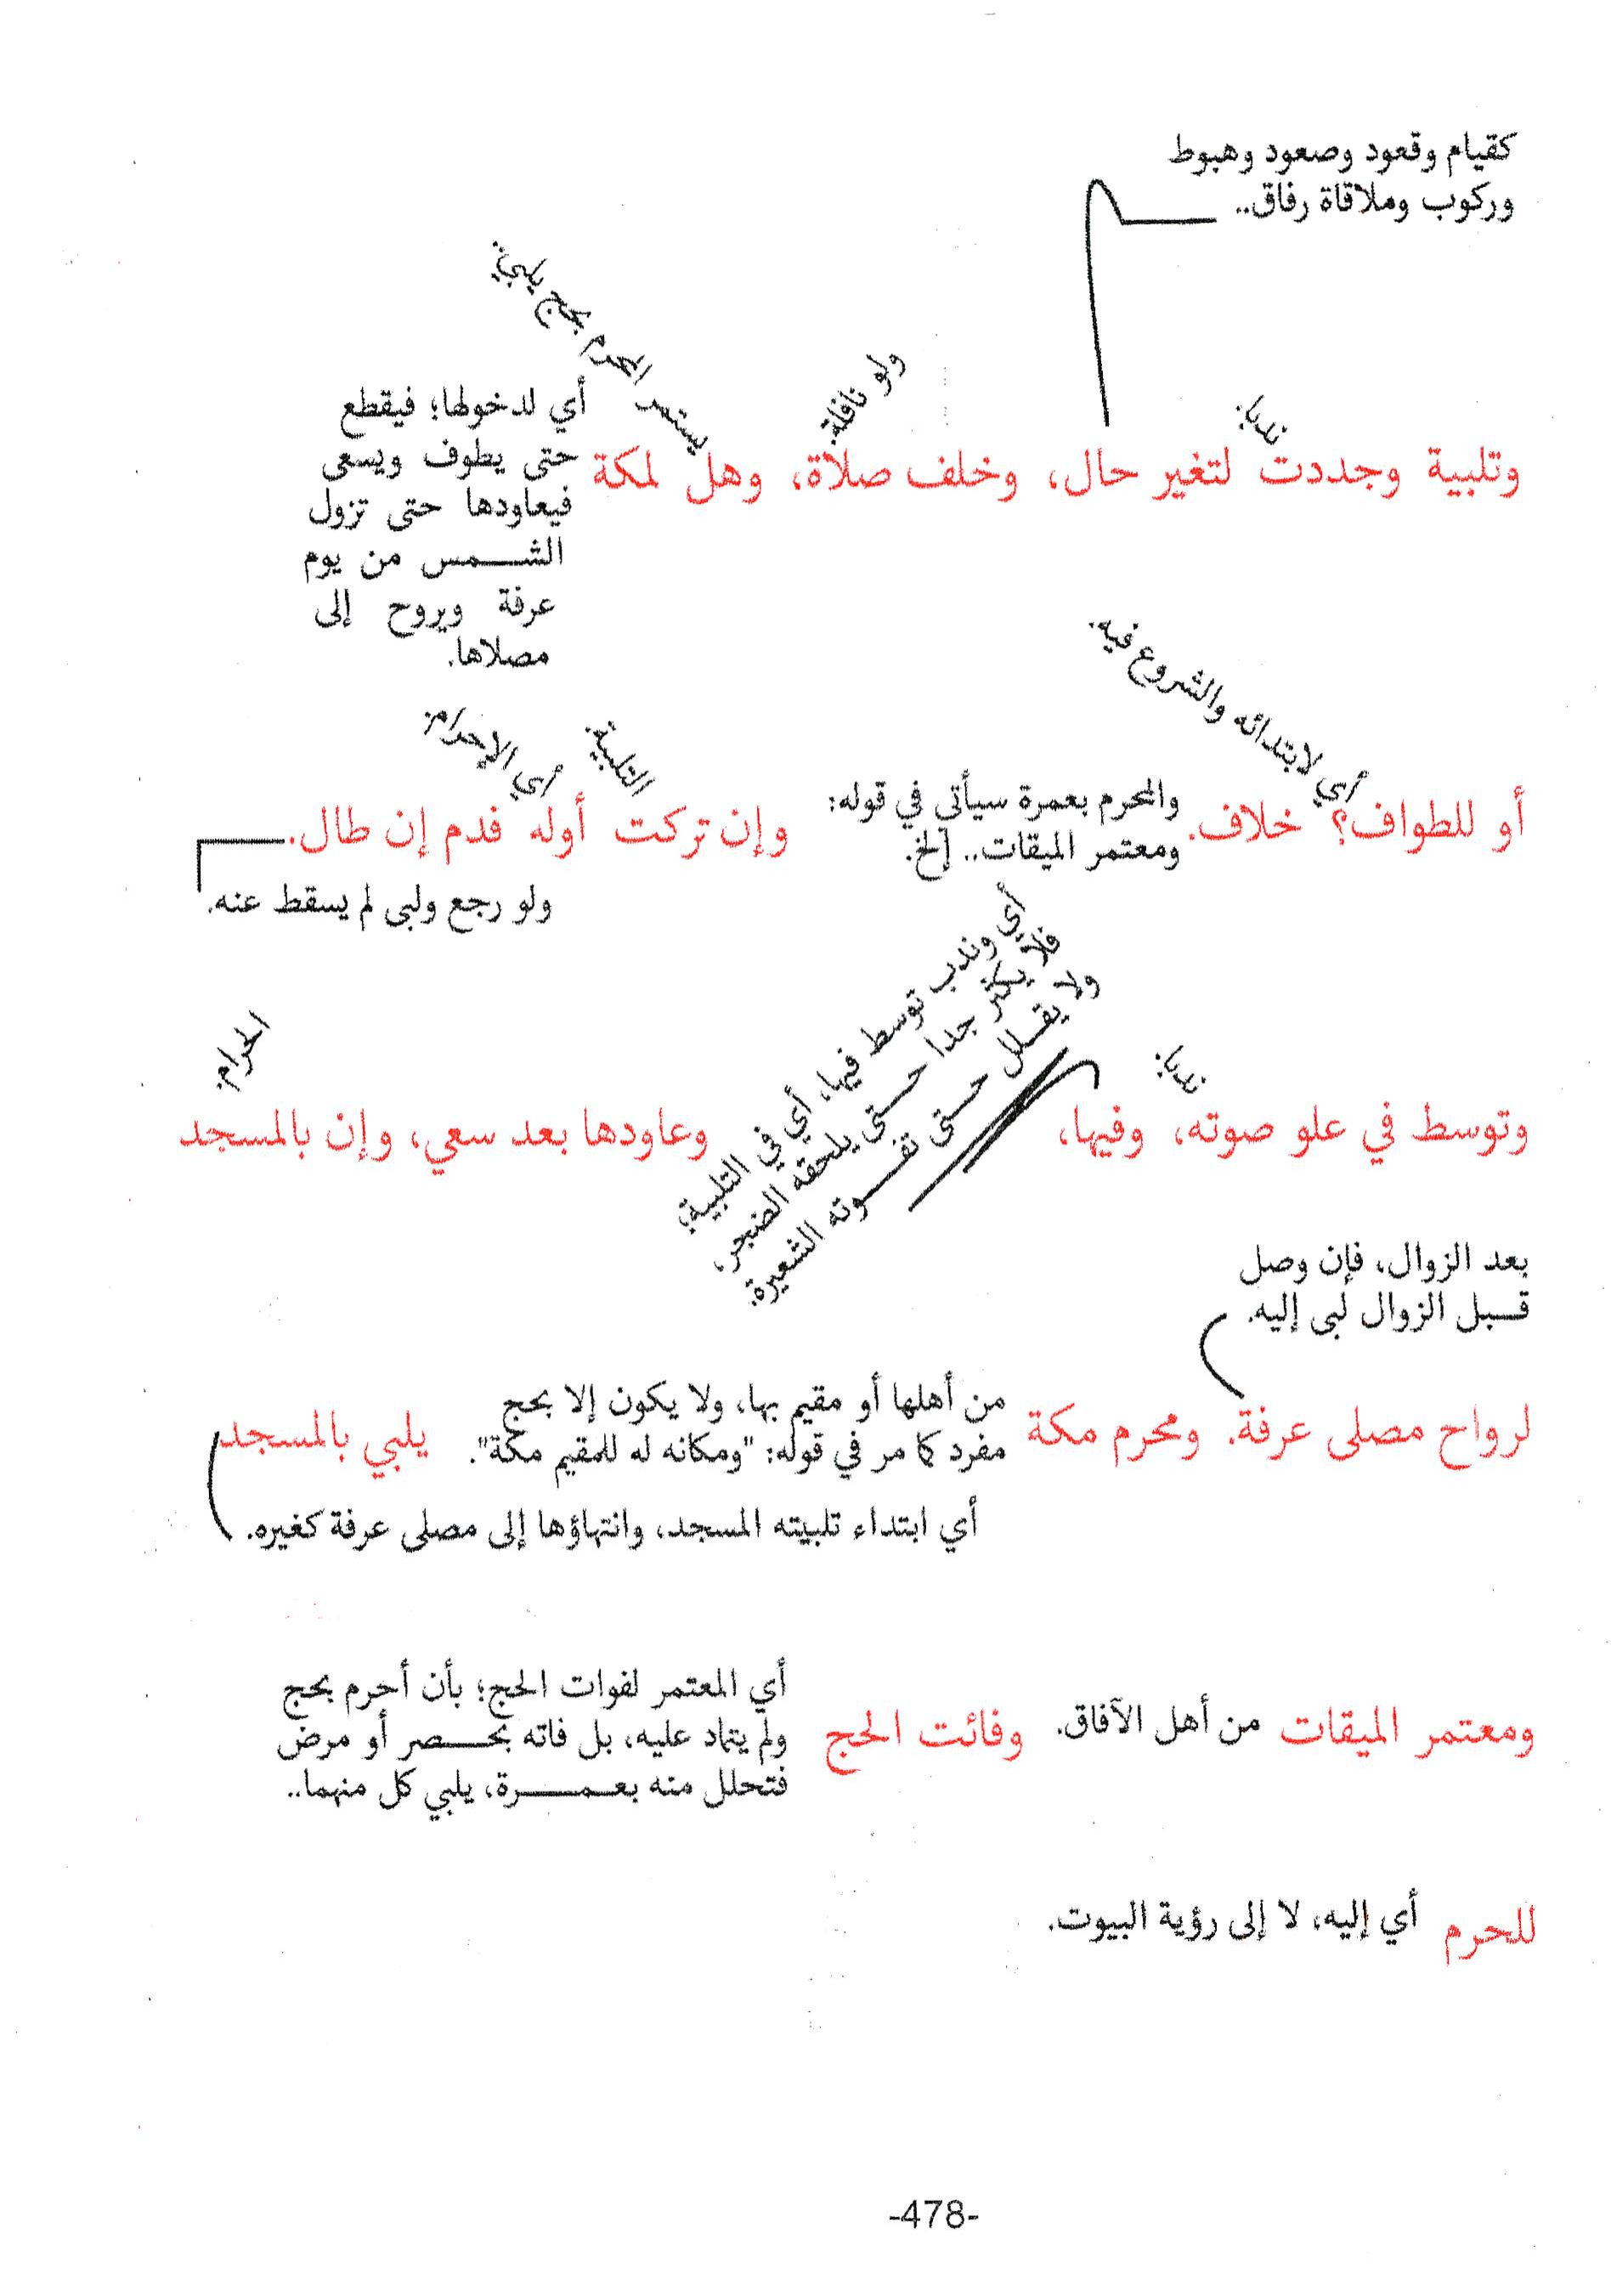 كقيام وقعود وصعود وهبوط
وركوب وملاقاة رفاق..
ندبا.
ولو نافلة.
يستمر المحرم بحج يلبي.
وتلبية وجددت لتغير حال، وخلف صلاة، وهل لمكة
أي لدخولها؛ فيقطع
حتى يطوف ويسعى
فيعاودها حتى تزول
الشمس من يوم
عرفة ويروح إلى
مصلاها.
أي لابتدائه والشروع فيه.
أو للطواف؟ خلاف.
والمحرم بعمرة سيأتي في قوله:
ومعتمر الميقات.. إلخ.
التلبية.
أي الإحرام.
وإن تركت أوله فدم إن طال.
ولو رجع ولبى لم يسقط عنه.
ندبا.
وتوسط في علو صوته، وفيها،
أي وندب توسط فيها، أي في التلبية؛
فلا يكثر جدا حتى يلحقه الضجر،
ولا يقلل حتى تفوته الشعيرة.
الحرام.
وعاودها بعد سعي، وإن بالمسجد
بعد الزوال، فإن وصل
قبل الزوال لبى إليه.
لرواح مصلى عرفة. ومحرم مكة
من أهلها أو مقيم بها، ولا يكون إلا بحج
مفرد كما مر في قوله: "ومكانه له للمقيم مكة".
يلبي بالمسجد
أي ابتداء تلبيته المسجد، وانتهاؤها إلى مصلى عرفة كغيره.
ومعتمر الميقات من أهل الآفاق. وفائت الحج
أي المعتمر لفوات الحج؛ بأن أحرم بحج
ولم يتماد عليه، بل فاته بحصر أو مرض
فتحلل منه بعمرة، يلبي كل منهما..
للحرم أي إليه، لا إلى رؤية البيوت.
-478-